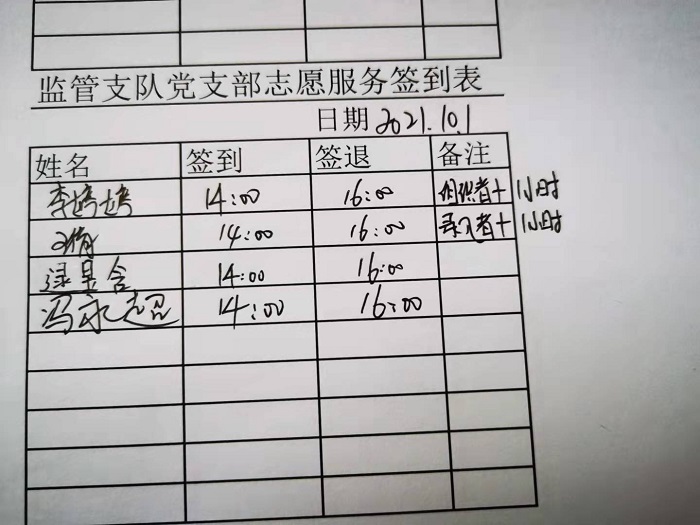 监管支队党支部志愿服务签到表
日期 2021.10.1
姓名 签到 签退 备注
李婷婷 14:00 16:00 组织者+1小时
14:00 16:00 录入者+1小时
14:00 16:00
冯永超 14:00 16:00